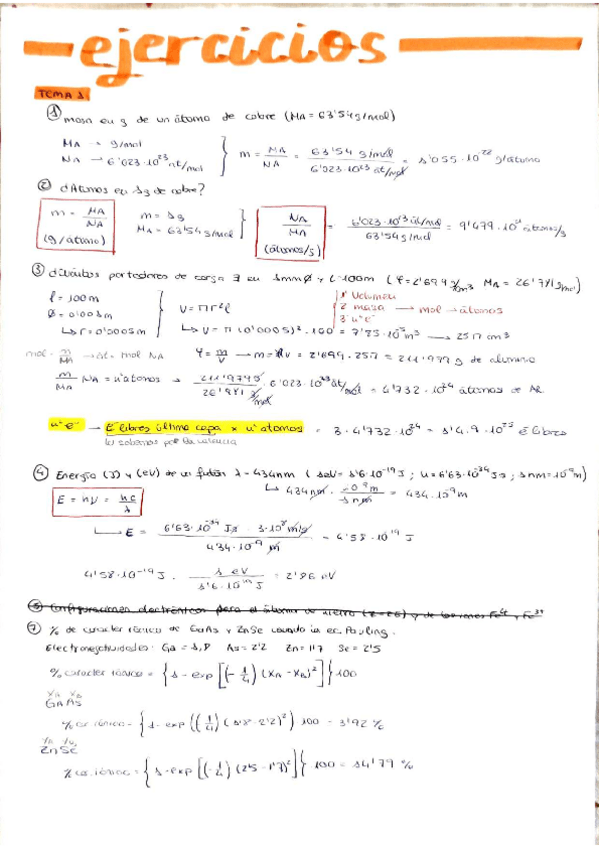 ejercicios
TEMA 1
① masa en g de un átomo de cobre (MA = 63'54 g/mol)
MA → g/mol
NA → 6'023·10²³ at/mol } m = MA/NA = 63'54 g/mol / 6'023·10²³ at/mol = 1'055·10⁻²² g/átomo
② ¿Átomos en 1g de cobre?
m = MA/NA (g/átomo) m = 1g MA = 63'54 g/mol } NA/MA (átomos/g) = 6'023·10²³ át/mol / 63'54 g/mol = 9'479·10²¹ átomos/g
③ ¿Cuántos portadores de carga ∃ en 1mm Ø y L=100m (φ=2'699 g/cm³ MA = 26'981 g/mol)
l = 100m
Ø = 0'001m
↳ r = 0'0005m } V = πr²l
↳ V = π (0'0005)²·100 = 7'85·10⁻⁵ m³ → 25π cm³
1º Volumen
2º masa → mol → átomos
3º nº e⁻
mol = m/MA → át = mol NA φ = m/V → m = φV = 2'699·25π = 211'979 g de aluminio
m/MA NA = nº átomos → 211'9795 / 26'981 g/mol · 6'023·10²³ át/mol = 4'732·10²⁴ átomos de Al
nº e⁻ → e⁻ libres última capa × nº átomos = 3·4'732·10²⁴ = 14.9·10²⁵ e⁻ libres
lo sabemos por la valencia
④ Energía (J) y (eV) de un fotón λ = 434nm (1eV = 1'6·10⁻¹⁹ J; h = 6'63·10⁻³⁴ J·s; 1nm = 10⁻⁹ m)
↳ 434nm · 10⁻⁹m / 1nm = 434·10⁻⁹m
E = hν = hc/λ
↳ E = 6'63·10⁻³⁴ J·s · 3·10⁸ m/s / 434·10⁻⁹ m = 4'58·10⁻¹⁹ J
4'58·10⁻¹⁹ J · 1 eV / 1'6·10⁻¹⁹ J = 2'86 eV
⑦ % de carácter iónico de GaAs y ZnSe usando la ec. Pauling.
Electronegatividades: Ga = 1,8 As = 2'2 Zn = 1'7 Se = 2'5
% carácter iónico = {1 - exp[(-1/4)(XA - XB)²]}100
XA XB
GaAs
% car iónico = {1 - exp((1/4)(1'8 - 2'2)²) 100 = 3'92 %
ZnSe
% car. iónico = {1 - exp[(-1/4)(2'5 - 1'7)²]} 100 = 14'79 %